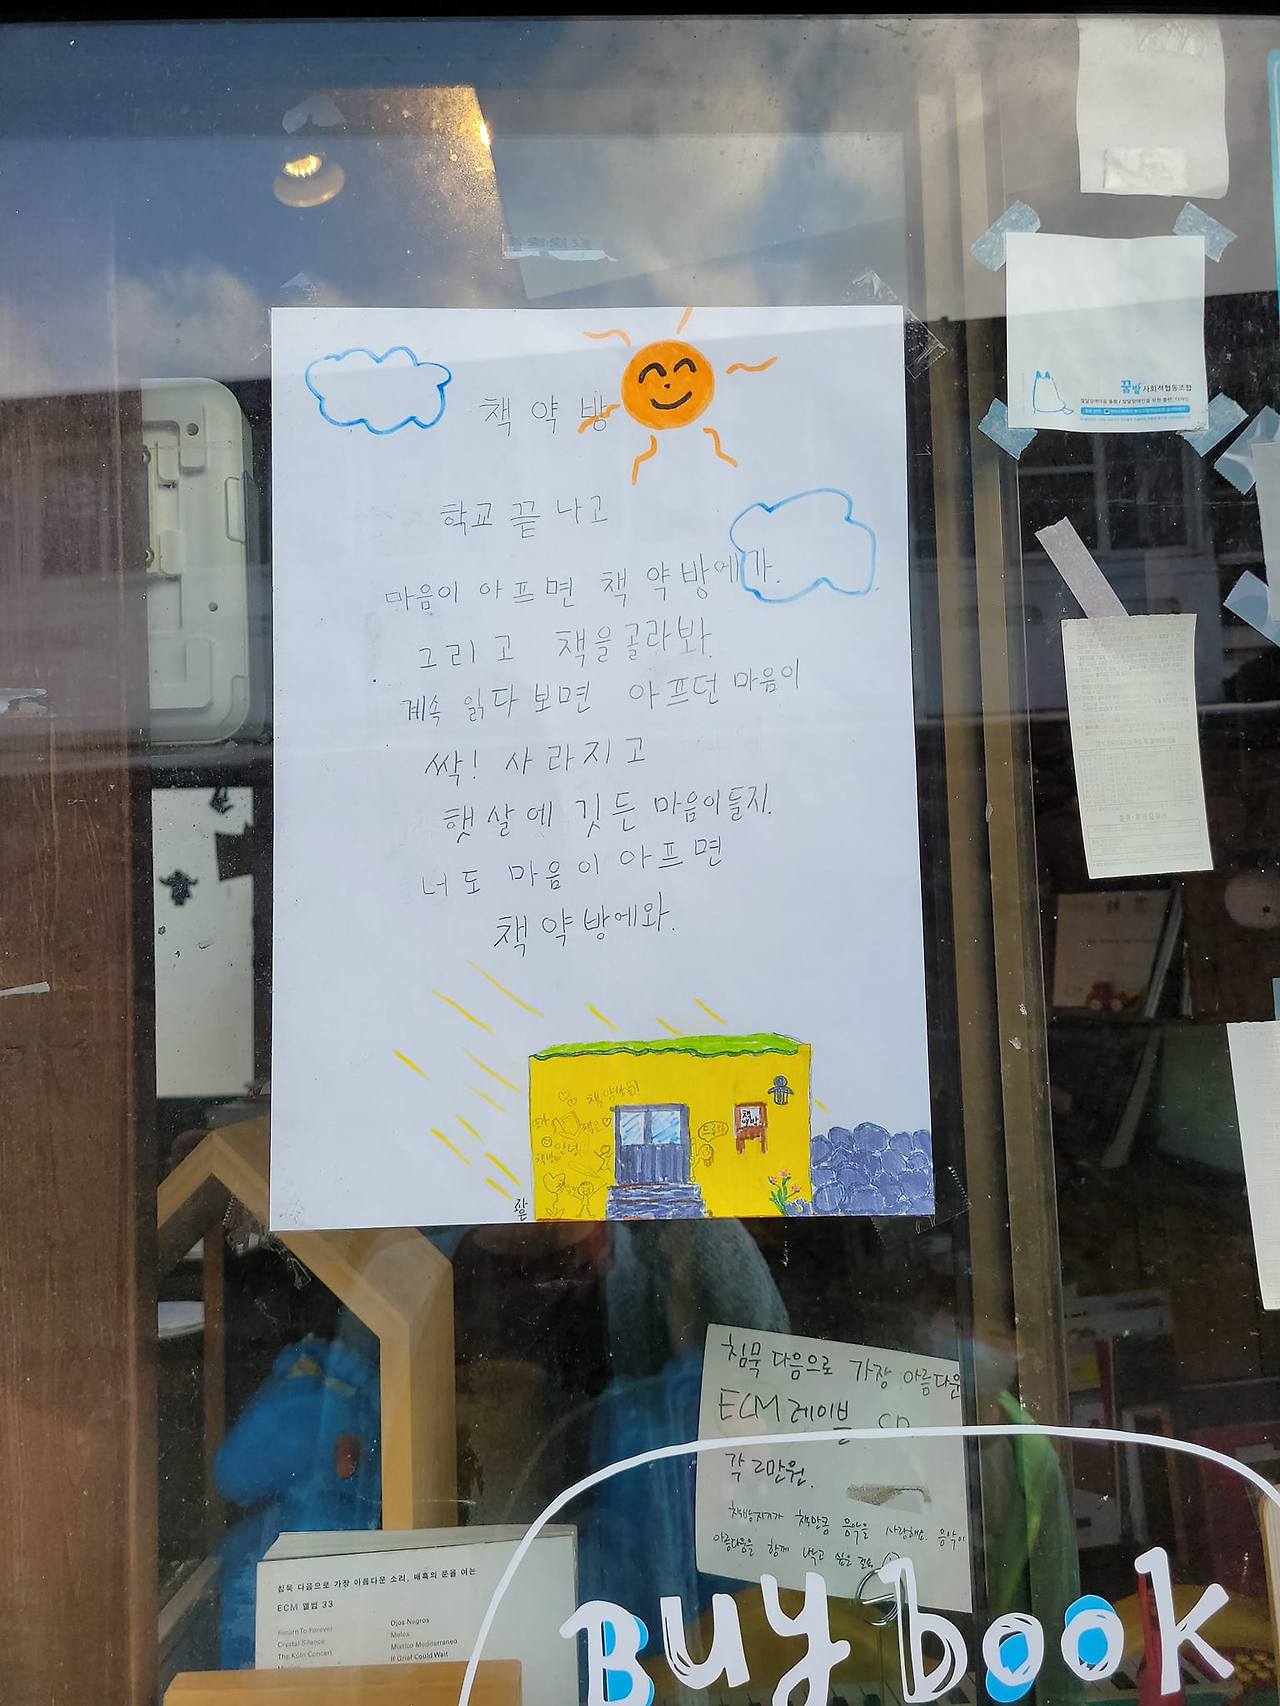 책 약 방
학교 끝 나고
마음이 아프면 책 약방에 가.
그리고 책을골라봐.
계속 읽다보면 아프던 마음이
싹! 사라지고
햇살에 깃든 마음이들지.
너도 마음이 아프면
책 약방에와.
책
약방
안녕!
꿈방 사회적협동조합
침묵 다음으로 가장 아름다운
ECM 레이블 CD
각 2만원.
책방지기가 책만큼 음악을 사랑해요. 음악의
아름다움을 함께 나누고 싶은
침묵 다음으로 가장 아름다운 소리, 매혹의 문을 여는
ECM 앨범 33
Return To Forever
Crystal Silence
The Köln Concert
Ojos Negros
Melos
Mistico Mediterraneo
If Grief Could Wait
Buy book